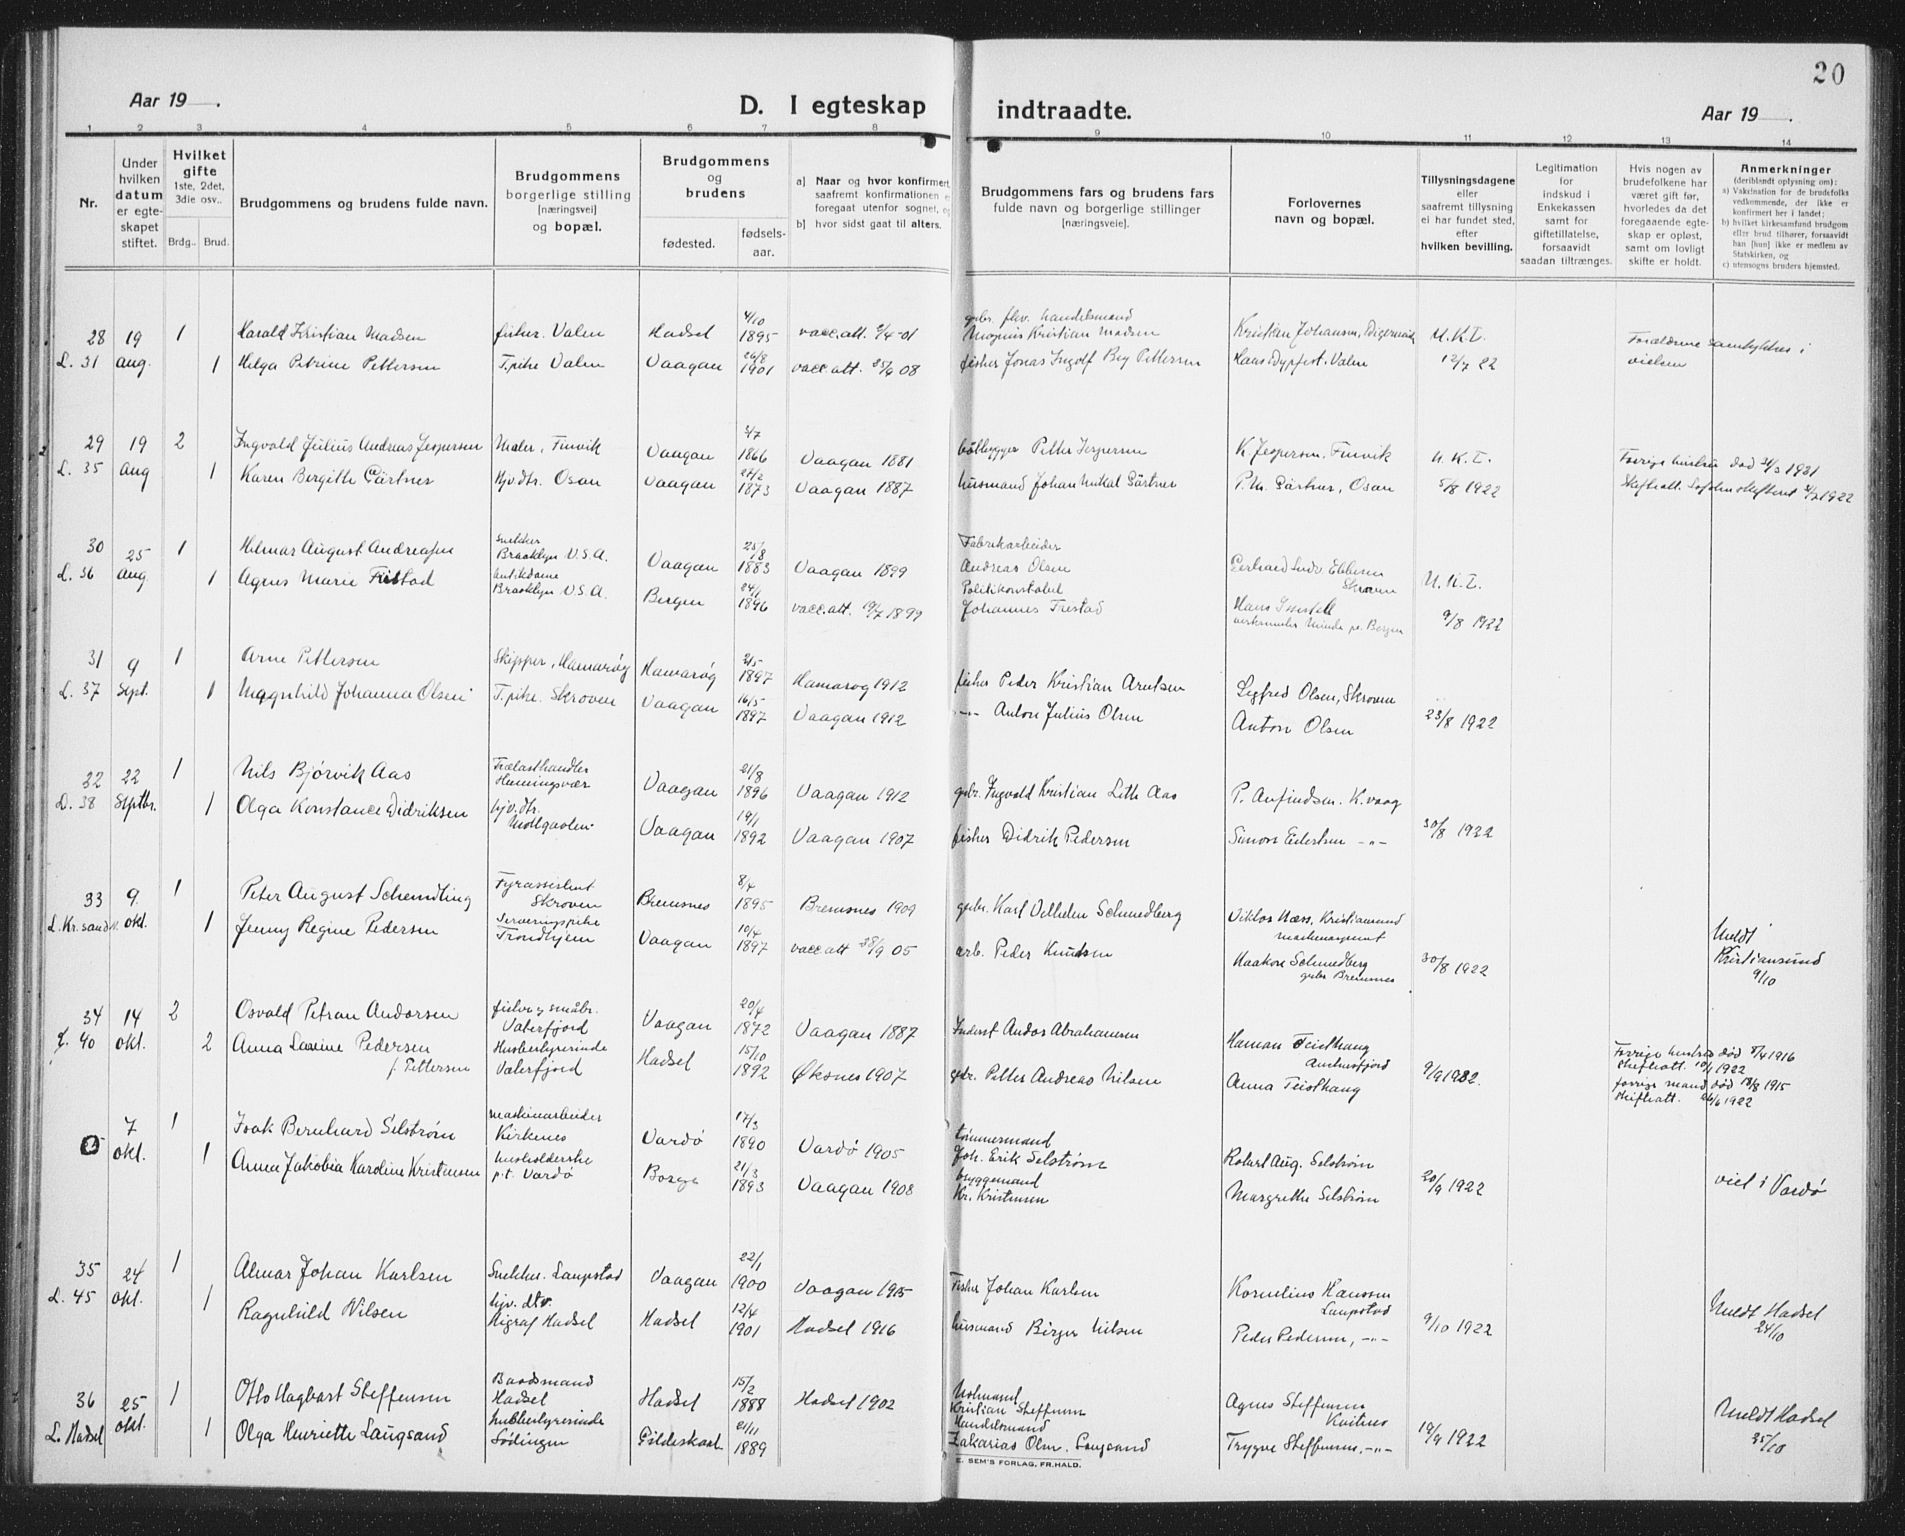 20
Aar 19 .
D. I egteskap indtraadte.
Aar 19 .
1 2 3 4 5 6 7 8 9 10 11 12 13 14
Nr.
Under hvilken datum er egteskapet stiftet.
Hvilket gifte 1ste, 2det, 3die osv..
Brdg.. Brud.
Brudgommens og brudens fulde navn.
Brudgommens borgerlige stilling [næringsvei] og bopæl.
Brudgommens og brudens
fødested. fødselsaar.
a) Naar og hvor konfirmert,
saafremt konfirmationen er
foregaat utenfor sognet, og
b) hvor sidst gaat til alters.
Brudgommens fars og brudens fars
fulde navn og borgerlige stillinger
[næringsveie].
Forlovernes
navn og bopæl.
Tillysningsdagene
eller
saafremt tillysning
ei har fundet sted,
efter
hvilken bevilling.
Legitimation
for
indskud i
Enkekassen
samt for
giftetillatelse,
forsaavidt
saadan tiltrænges.
Hvis nogen av
brudefolkene har
været gift før,
hvorledes da det
foregaaende egte-
skap er opløst,
samt om lovligt
skifte er holdt.
Anmerkninger
(deriblandt oplysning om):
a) Vakcination for de brudefolks
vedkommende, der ikke er
konfirmert her i landet;
b) hvilket kirkesamfund brudgom
eller brud tilhører, forsaavidt
han [hun] ikke er medlem av
Statskirken, og
c) utensogns bruders hjemsted.
28 19 1 Harald Kristian Madsen fisker. Valen Hadsel 4/10 1895 vacc.att. 2/4-01 gbr. fhv. handelsmand Mognus Kristian Madsen Kristian Johansen, Digermulen U.K.I.
L. 31 aug. 1 Helga Petrine Pettersen T.pike Valen Vaagan 26/8 1901 vacc.att. 25/6 08 fisker Jonas Ingolf Pettersen Valen 12/7 22 Forældrene samtykker i vielsen
29 19 2 Ingvald Julius Andreas Jespersen Maler, Finvik Vaagan 3/7 1866 Vaagan 1881 Petter Jespersen K. Jespersen. Finvik U.K.I. Forrige hustru død 1921
L. 35 aug 1 Karen Bergitte Gärtner Hjv.dtr. Osan Vaagan 27/2 1873 Vaagan 1887 husmand Johan Mikal Gärtner P.M. Gärtner, Osan 5/8 1922 Skifteatt. 1922
30 25 1 Helmar August Andreasen Snekker Braaklyn U.S.A. Vaagan 25/8 1883 Vaagan 1899 Fabrikarbeider Andreas Olsen Gerhard Ludv. Ebbesen Skroven U.K.I.
L. 36 aug 1 Agnes Marie Fristad Braaklyn U.S.A. Bergen 24/1 1896 vacc.att. 19/7 1899 Politikonstabel Johannes Fristad Hans Minde pr. Bergen 9/8 1922
31 9 1 Arne Pettersen Skipper, Hamarøy Hamarøy 2/5 1897 Hamarøy 1912 fisker Peder Kristian Arntsen Sigfred Olsen, Skroven
L. 37 Sept. 1 Magnhild Johanna Olsen T.pike. Skroven Vaagan 16/5 1897 Vaagan 1912 -"- Anton Julius Olsen Anton Olsen 23/8 1922
32 22 1 Nils Bjørvik Aas Trælasthandler Henningsvær Vaagan 21/8 1896 Vaagan 1912 gbr. Ingvald Kristian Lith Aas P. Arfindsen. K.vaag
D. 38 Septbr. 1 Olga Konstance Didriksen hjv.dtr. Vaagan 19/1 1892 Vaagan 1907 fisker Didrik Pedersen Simon Eilertsen -"- 30/8 1922
33 9. 1 Peter August Schemdling Fyrassistent Skroven Bremsnes 8/4 1895 Bremsnes 1909 gbr. Karl Vilhelm Schmedberg Viktor Næss, Kristiansund
L. Kr.sand N. okt. 1 Jenny Regine Pedersen Serveringspike Trondhjem Vaagan 10/4 1897 vacc.att 28/9 05 arb. Peder Knudsen Haakon Schmedberg gbr Bremsnes 30/8 1922 Meldt Kristiansund 9/10
34 14 2 Osvald Petran Andorsen fisker og småbr. Vaterfjord Vaagan 20/4 1872 Vaagan 1887 Inderst Andor Abrahamsen Haman Teisthaug Forrige hustru død 8/4 1916
L. 40 okt. 2 Anna Laurine Pedersen f. Pettersen Husbestyrerinde Vaterfjord Hadsel 15/10 1892 Øksnes 1907 gbr. Petter Andreas Nilsen Anna Teisthaug 9/9 1922. Skifteatt. 1922 forrige mand død 18/8 1915 Skifteatt. 1922
7 1 Isak Bernhard Selstrøm maskinarbeider Kirkenes Vardø 17/3 1890 Vardø 1905 tømmermand Joh. Erik Selstrøm Robert Aug. Selstrøm
okt. 1 Anna Jakobia Karoline Kristensen husholderske p.t. Vardø Borge 21/3 1893 Vaagan 1908 bryggemand Kr. Kristensen Margrethe Selstrøm 20/9 1922 viet i Vardø
35 24 1 Almar Johan Karlsen Snekker. Laupstad Vaagan 22/1 1900 Vaagan 1915 Fisker Johan Karlsen Kornelius Hanssen Laupstad
L. 45 okt. 1 Ragnhild Nilsen hjv. dtr. Higraf Hadsel Hadsel 12/4 1901 Hadsel 1916 husmand Birger Nilsen Peder Pedersen, -"- 9/10 1922 Meldt Hadsel 24/10
36 25 1 Otto Hagbart Steffensen Baadsmand Hadsel Hadsel 15/2 1888 Hadsel 1902 Kristian Steffensen Agnes Steffensen
L. Hadsel okt. 1 Olga Henriette Laugsand husbestyrerinde Lødingen Gildeskaal 21/11 1889 Handelsmand Zakarias Olsen Laugsand Trygve Steffensen, -"- 19/9 1922 Meldt Hadsel 25/10
E. SEM'S FORLAG, FR.HALD.